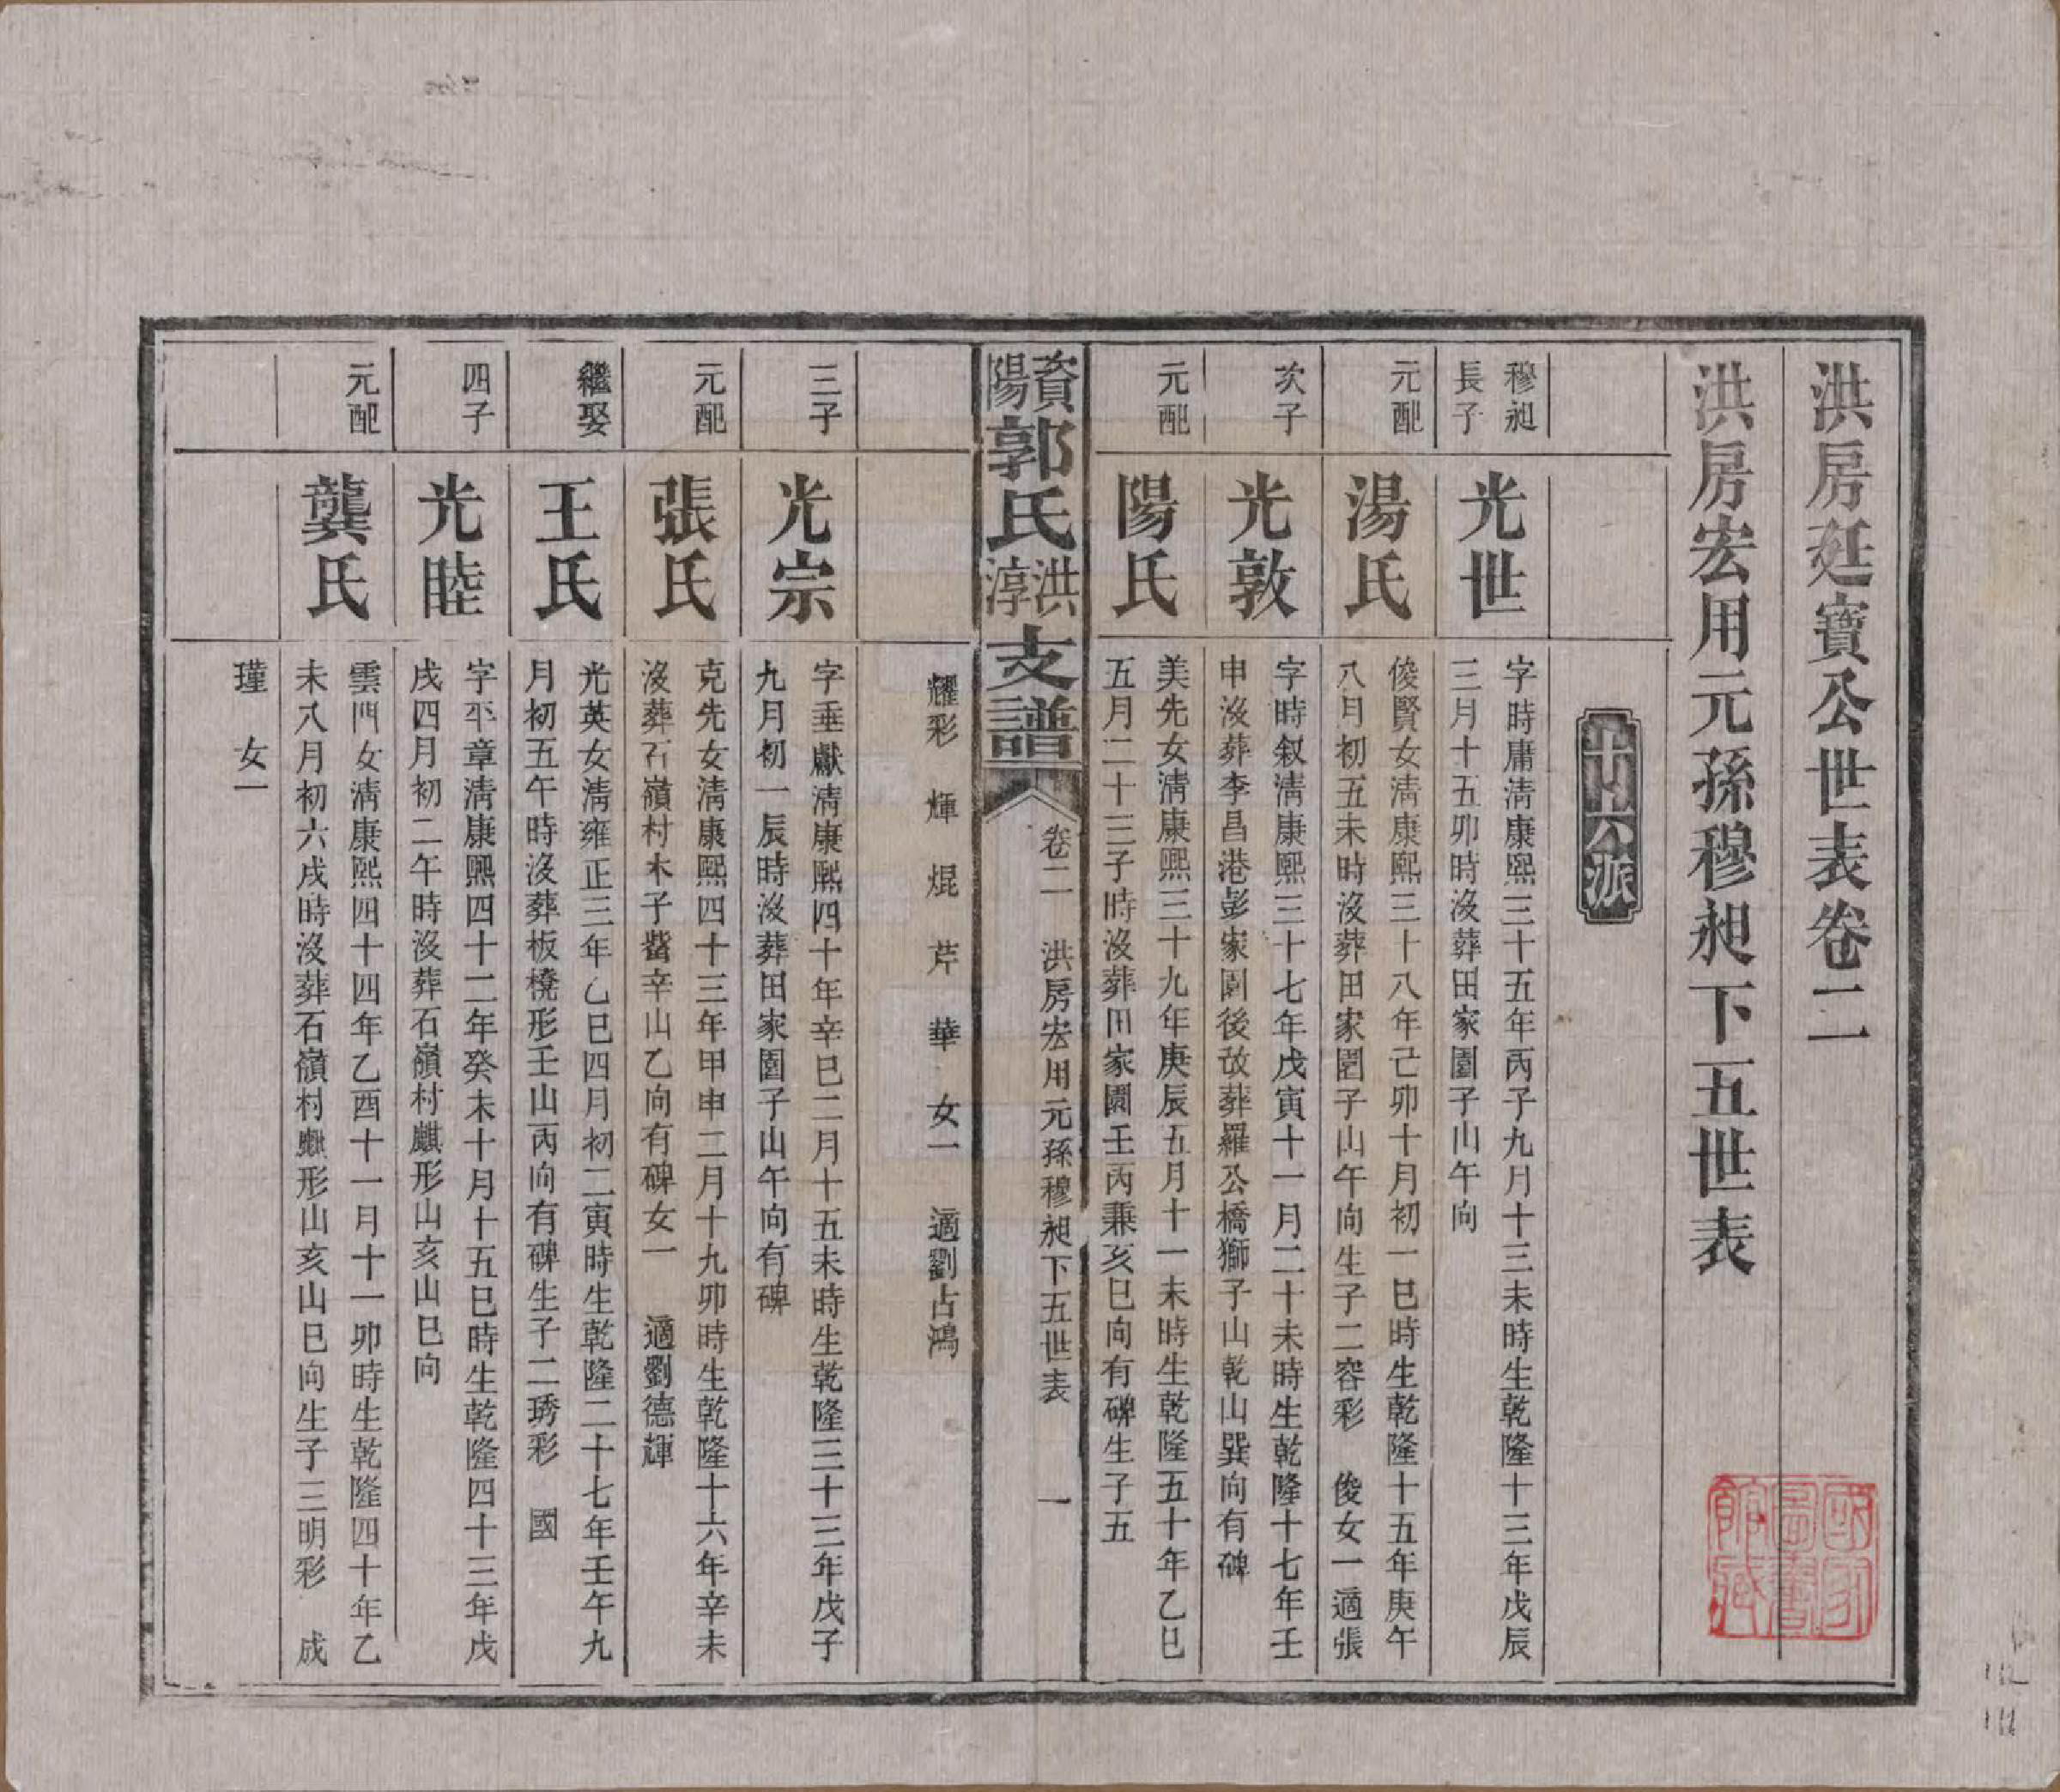 洪房廷寶公世表卷二
洪房宏用元孫穆昶下五世表
十六派
穆昶
長子
光世
字時庸清康熙三十五年丙子九月十三未時生乾隆十三年戊辰
三月十五卯時沒葬田家園子山午向
元配
湯氏
俊賢女清康熙三十八年己卯十月初一巳時生乾隆十五年庚午
八月初五未時沒葬田家園子山午向生子二容彩 俊女一適張
次子
光敦
字時叙清康熙三十七年戊寅十一月二十未時生乾隆十七年壬
申沒葬李昌港彭家園後改葬羅公橋獅子山乾山巽向有碑
元配
陽氏
美先女清康熙三十九年庚辰五月十一未時生乾隆五十年乙巳
五月二十三子時沒葬田家園壬丙兼亥巳向有碑生子五
資陽郭氏洪淳支譜
卷二 洪房宏用元孫穆昶下五世表 一
耀彩 煇 焜 芹 華 女一 適劉占鴻
三子
光宗
字垂獻清康熙四十年辛巳二月十五未時生乾隆三十三年戊子
九月初一辰時沒葬田家園子山午向有碑
元配
張氏
克先女清康熙四十三年甲申二月十九卯時生乾隆十六年辛未
沒葬石嶺村木子辛山乙向有碑女一 適劉德輝
繼娶
王氏
光英女清雍正三年乙巳四月初二寅時生乾隆二十七年壬午九
月初五午時沒葬板橈形壬山丙向有碑生子二琇彩 國
四子
光睦
字平章清康熙四十二年癸未十月十五巳時生乾隆四十三年戊
戌四月初二午時沒葬石嶺村麒形山亥山巳向
元配
龔氏
雲門女清康熙四十四年乙酉十一月十一卯時生乾隆四十年乙
未八月初六戌時沒葬石嶺村形山亥山巳向生子三明彩 成
瑾 女一
國家圖書館藏